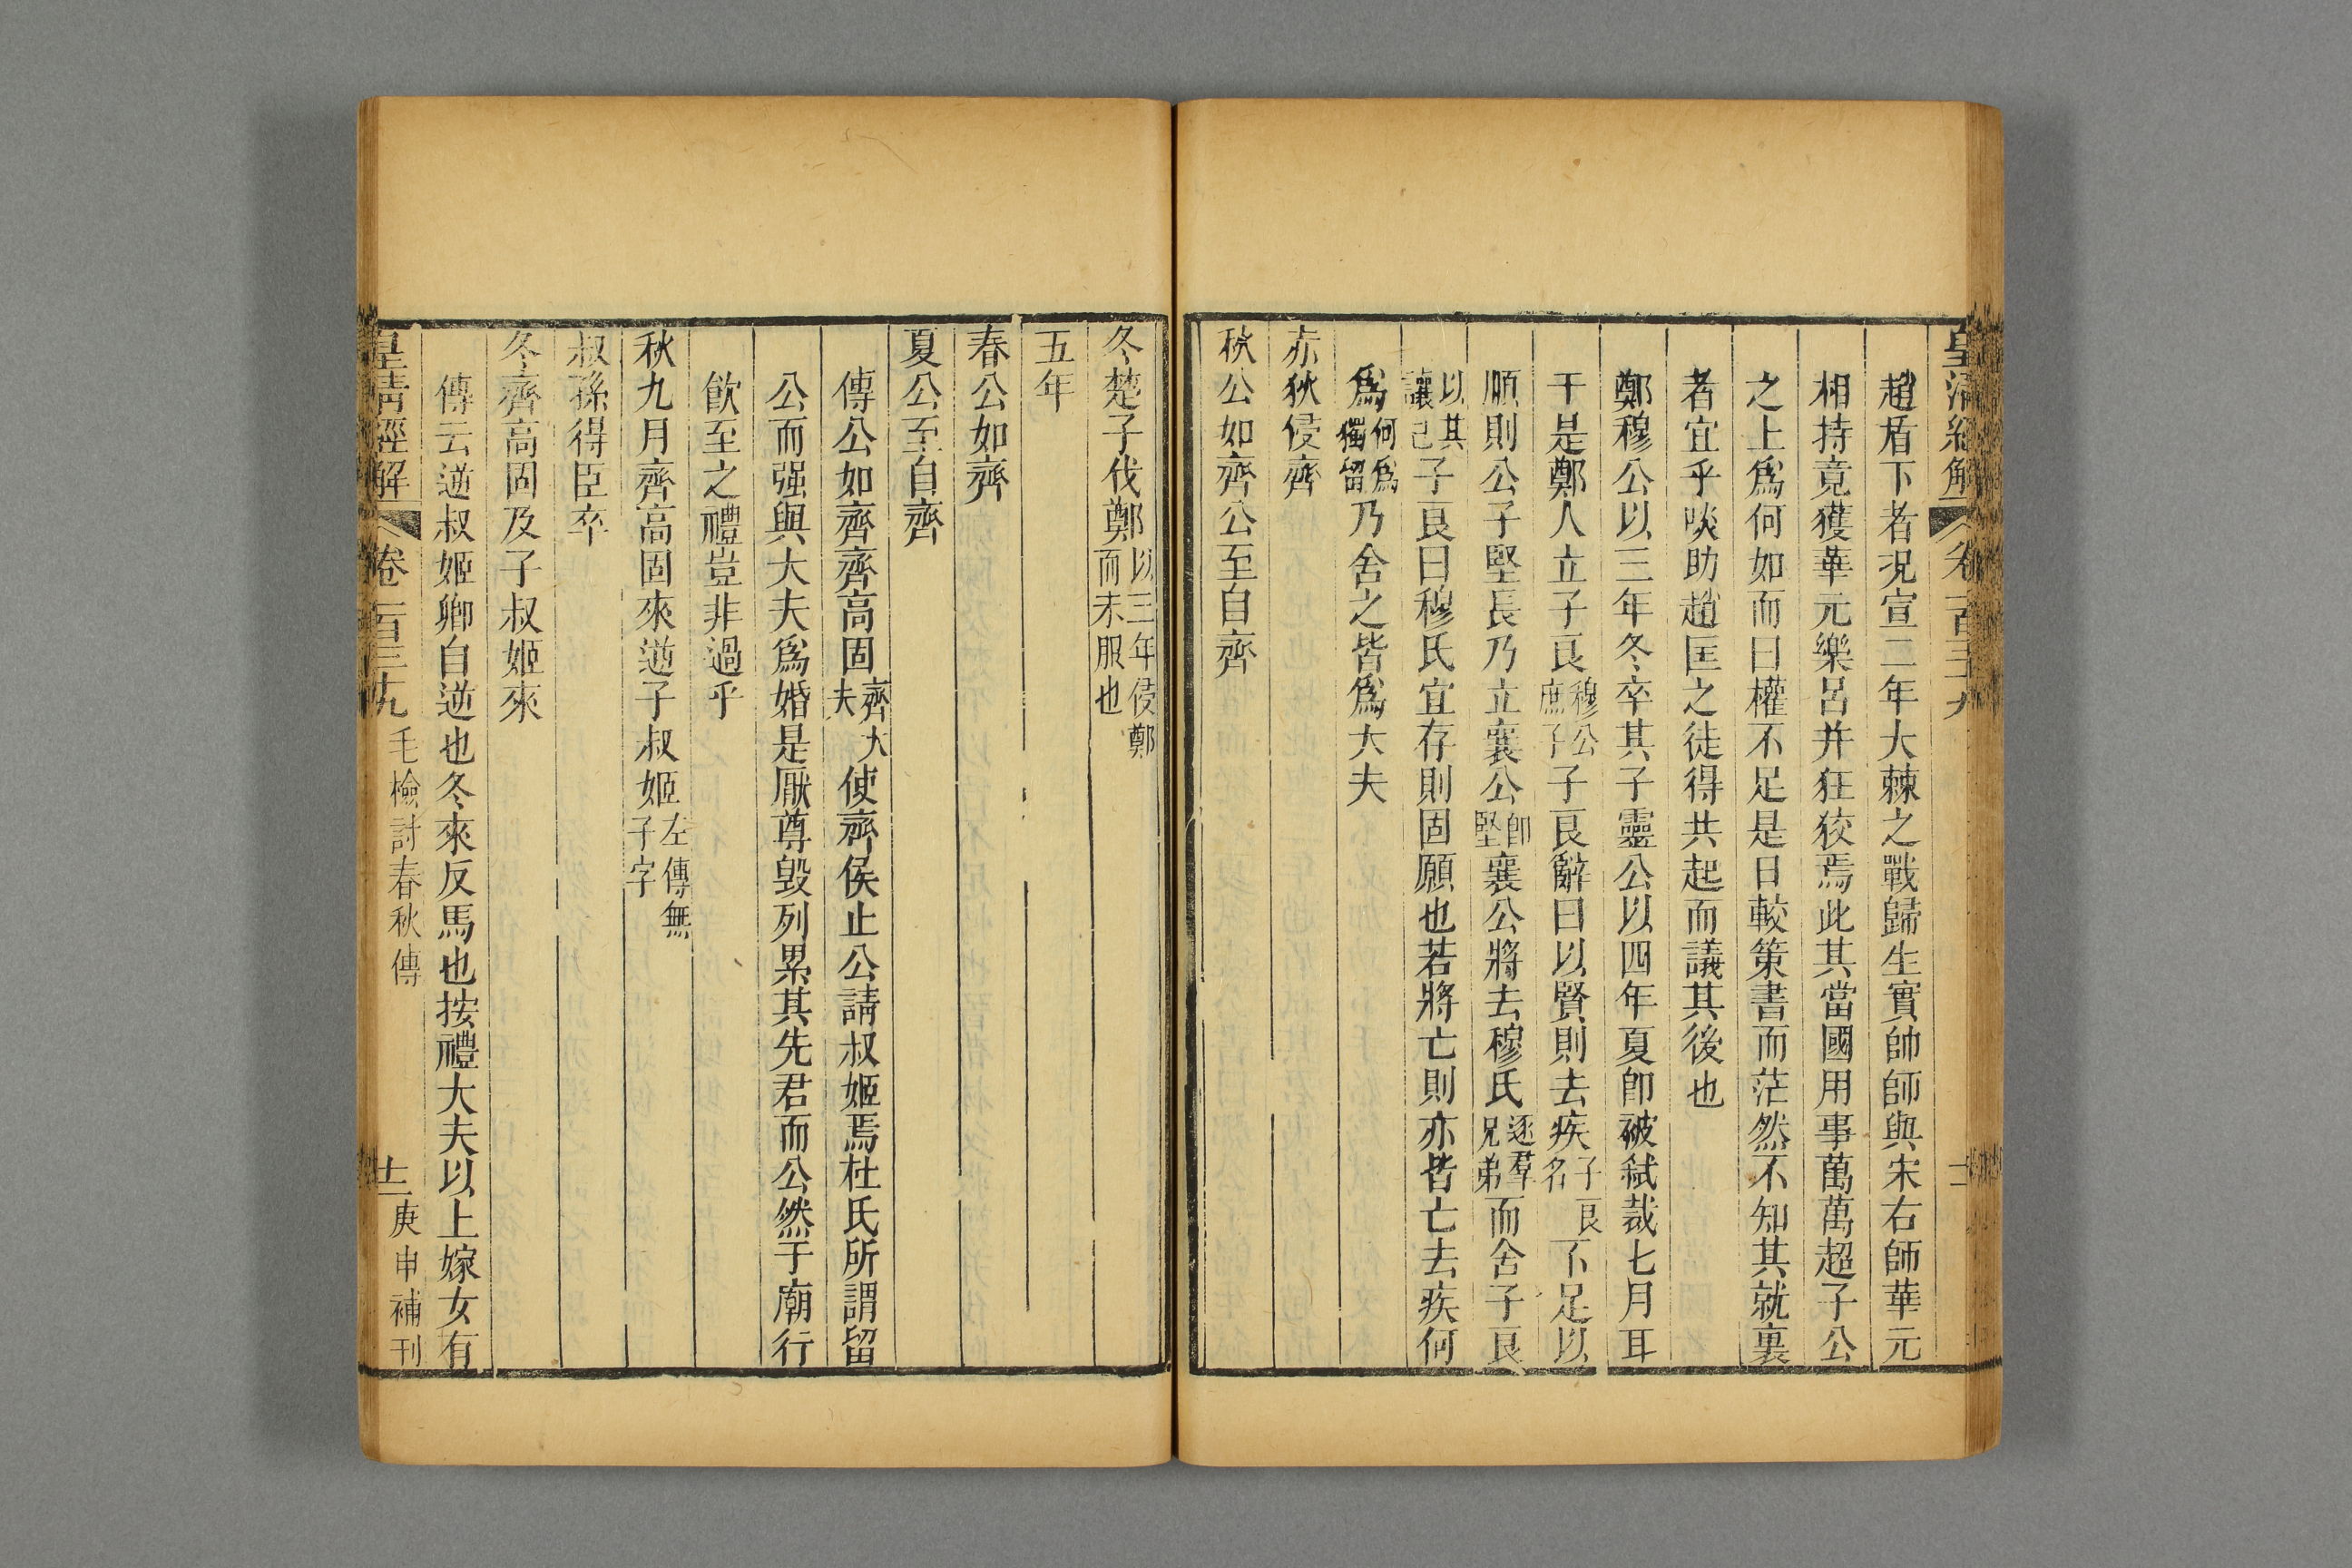 皇清經解 卷一百三十九 十二
趙盾下者況宣二年大棘之戰歸生實帥師與宋右師華元
相持竟獲華元樂呂并狂狡焉此其當國用事萬萬超子公
之上爲何如而曰權不足是日較策書而茫然不知其就裏
者宜乎啖助趙匡之徒得共起而議其後也
鄭穆公以三年冬卒其子靈公以四年夏卽被弑裁七月耳
于是鄭人立子良穆公庶子子良辭曰以賢則去疾子良名不足以
順則公子堅長乃立襄公卽堅襄公將去穆氏逐羣兄弟而舍子良
以其讓己子良曰穆氏宜存則固願也若將亡則亦皆亡去疾何
爲何爲獨留乃舍之皆爲大夫
赤狄侵齊
秋公如齊公至自齊
冬楚子伐鄭以三年侵鄭而未服也
五年
春公如齊
夏公至自齊
傳公如齊齊高固齊大夫使齊侯止公請叔姬焉杜氏所謂留
公而强與大夫爲婚是厭尊毀列累其先君而公然于廟行
飲至之禮豈非過乎
秋九月齊高固來逆子叔姬左傳無子字
叔孫得臣卒
冬齊高固及子叔姬來
傳云逆叔姬卿自逆也冬來反馬也按禮大夫以上嫁女有
皇清經解 卷一百三十九 毛檢討春秋傳 十二 庚申補刊